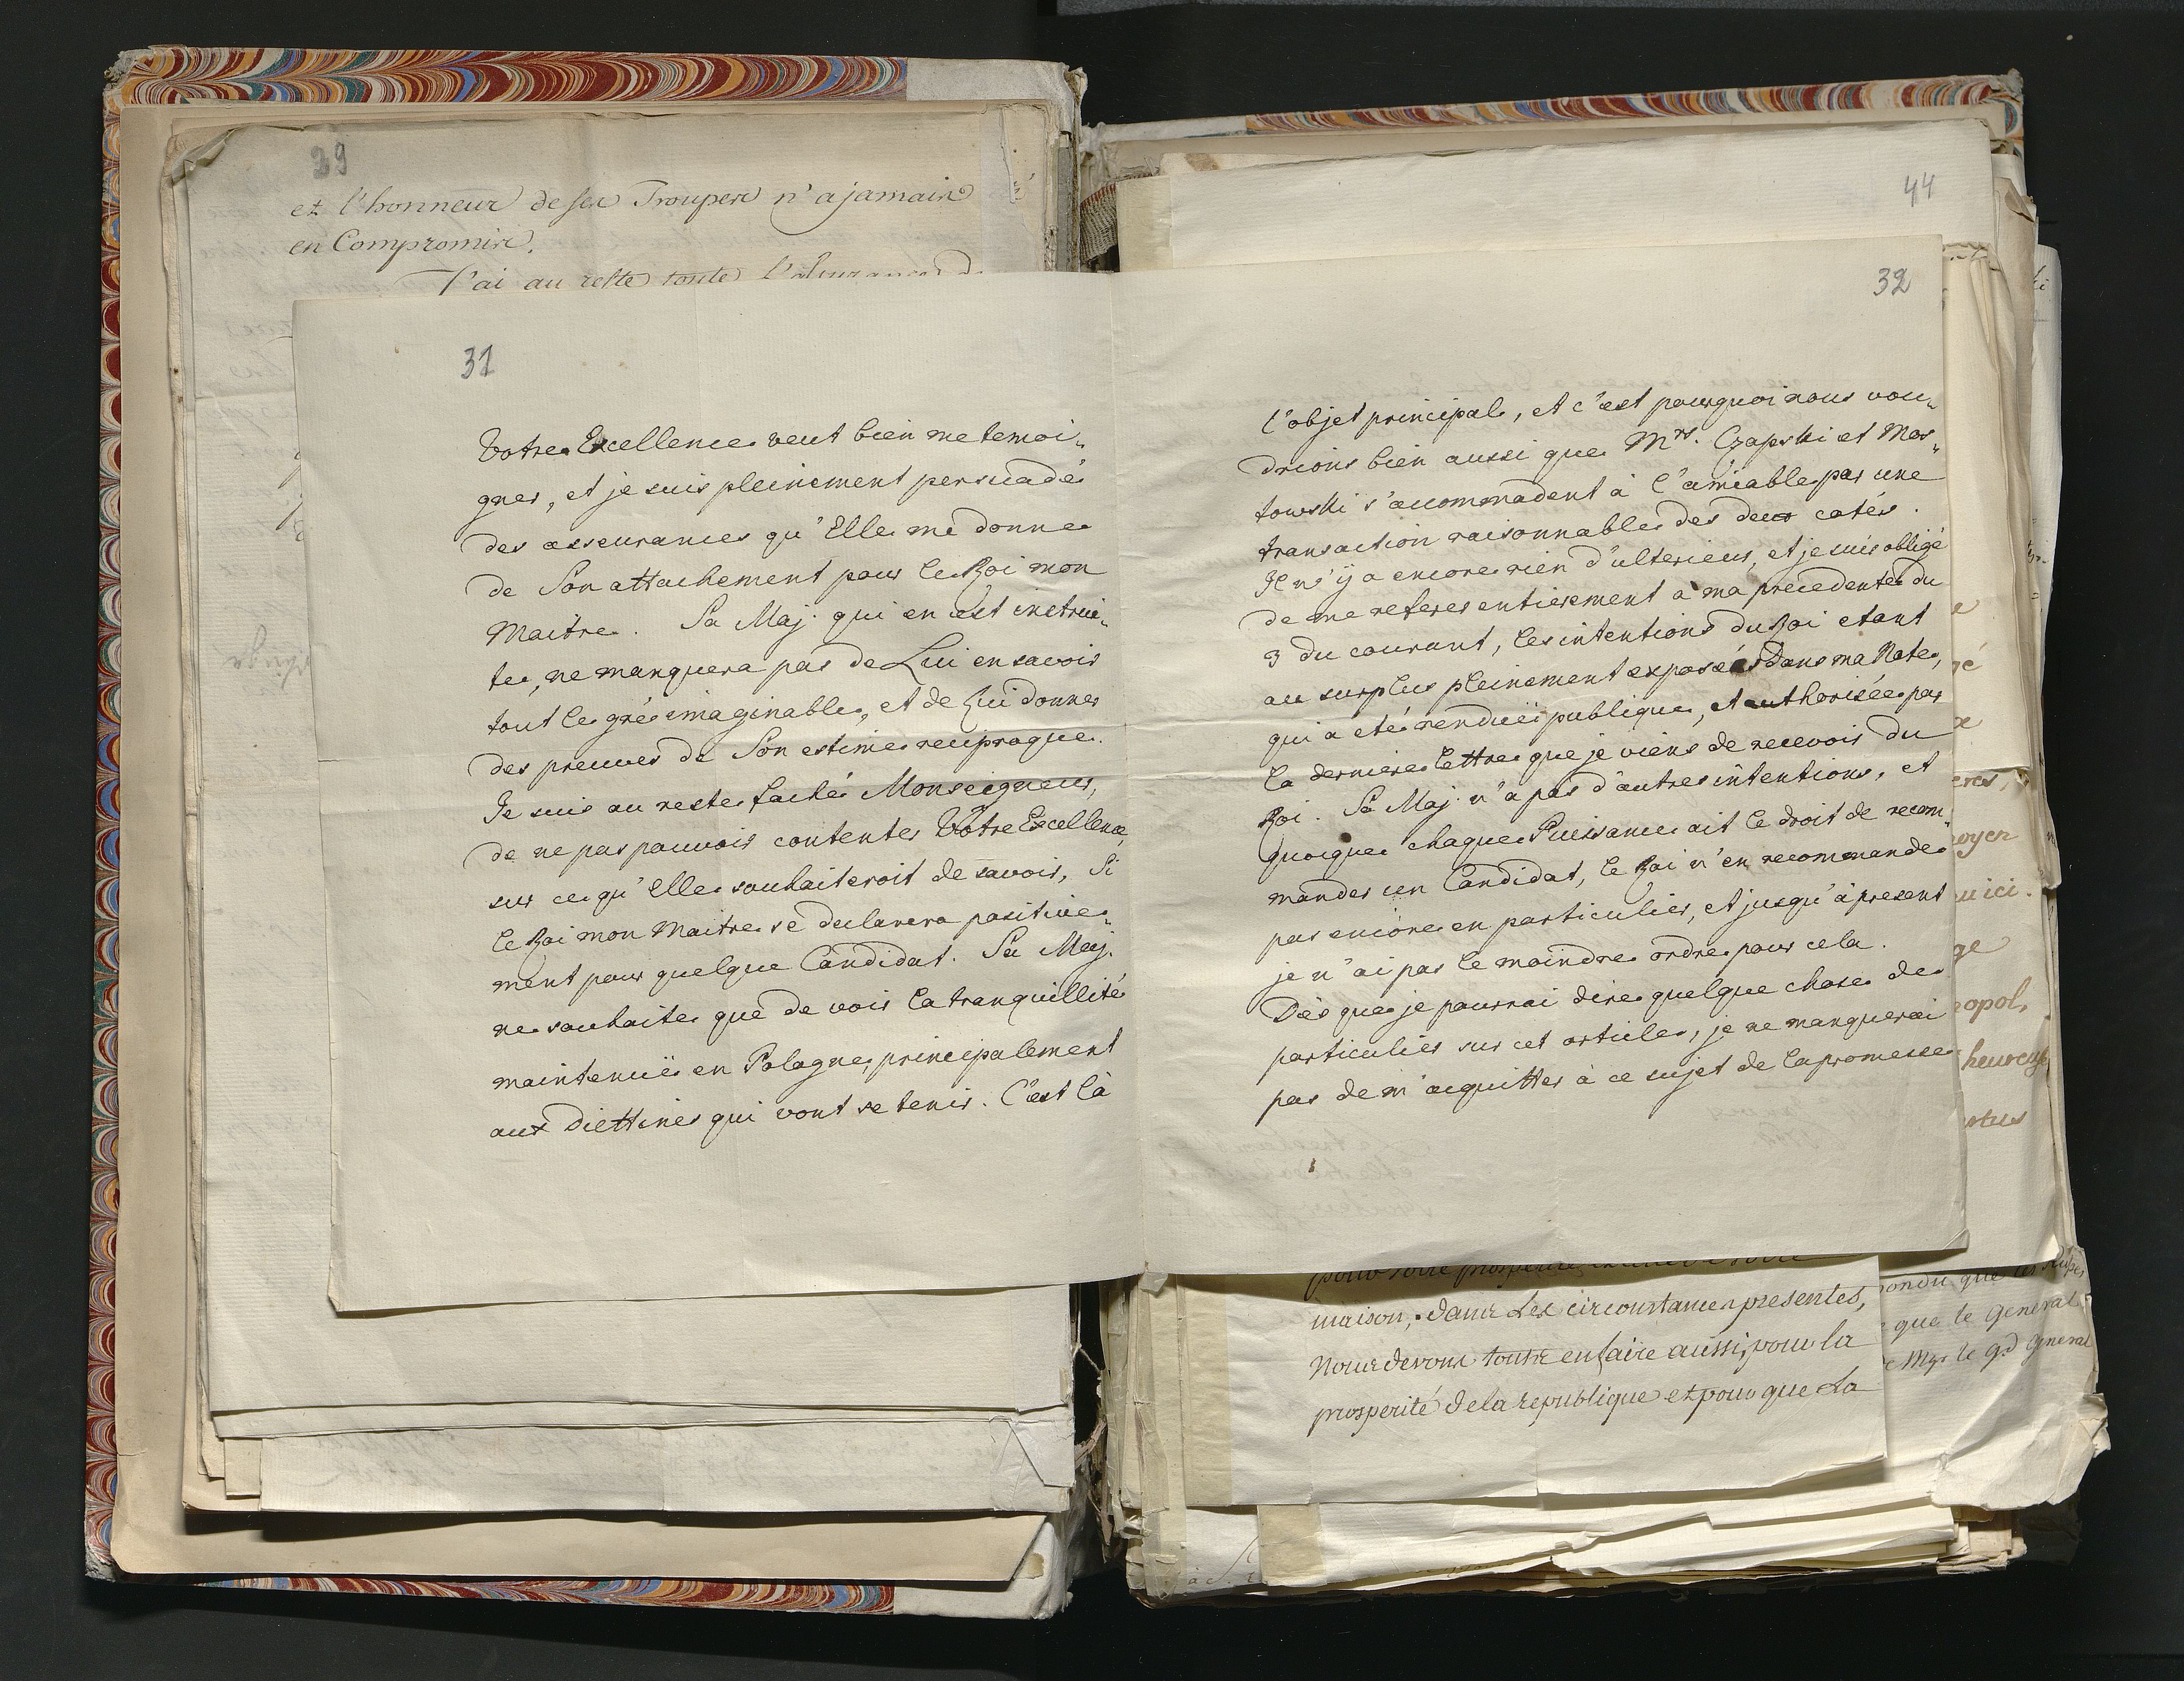 29
et l'honneur de ses Troupes n'a jamais
en Compromis.
J'ai au reste toute l'assurance
31
Votre Excellence veut bien me temoi„
gner, et je suis pleinement persuadé
des asseurances qu'Elle me donne
de Son attachement pour le Roi mon
Maitre. Sa Maj. qui en est instrui„
te, ne manquera pas de Lui en savoir
tout le gré imaginable, et de Lui donner
des preuves de Son estime reciproque.
Je suis au reste faché Monseigneur,
de ne pas pouvoir contenter Votre Excellence,
sur ce qu'Elle souhaiteroit de savoir, Si
le Roi mon Maitre se declarera positive„
ment pour quelque Candidat. Sa Maj.
ne souhaite que de voir la tranquillité
maintenuë en Pologne, principalement
aux Diettines qui vont se tenir. C'est là
44
32
l'objet principal, et c'est pourquoi nous vou„
drions bien aussi que Mrs. Czapski et Mos„
towski s'accommodent à l'amiable par une
transaction raisonnable des deux cotés.
Il n'ÿ a encore rien d'ulterieur, et je suis obligé
de me referer entierement à ma precedente du
3 du courant, les intentions du Roi etant
au surplus pleinement exposées dans ma Note,
qui a eté renduë publique, et authorisée par
la derniere lettre que je viens de recevoir du
Roi. Sa Maj. n'a pas d'autres intentions, et
quoique chaque Puissance ait le droit de recom„
mander un Candidat, le Roi n'en recommande
pas encore en particulier, et jusqu'à present
je n'ai pas le moindre ordre pour cela.
Dès que je pourrai dire quelque chose de
particulier sur cet article, je ne manquerai
pas de m'acquitter à ce sujet de la promesse
ici.
ge
opol,
heureuse
maison, dans les circonstances presentes,
Nous devons tous en faire aussi, pour la
prosperité de la republique et pour que La
que le General
le gd General